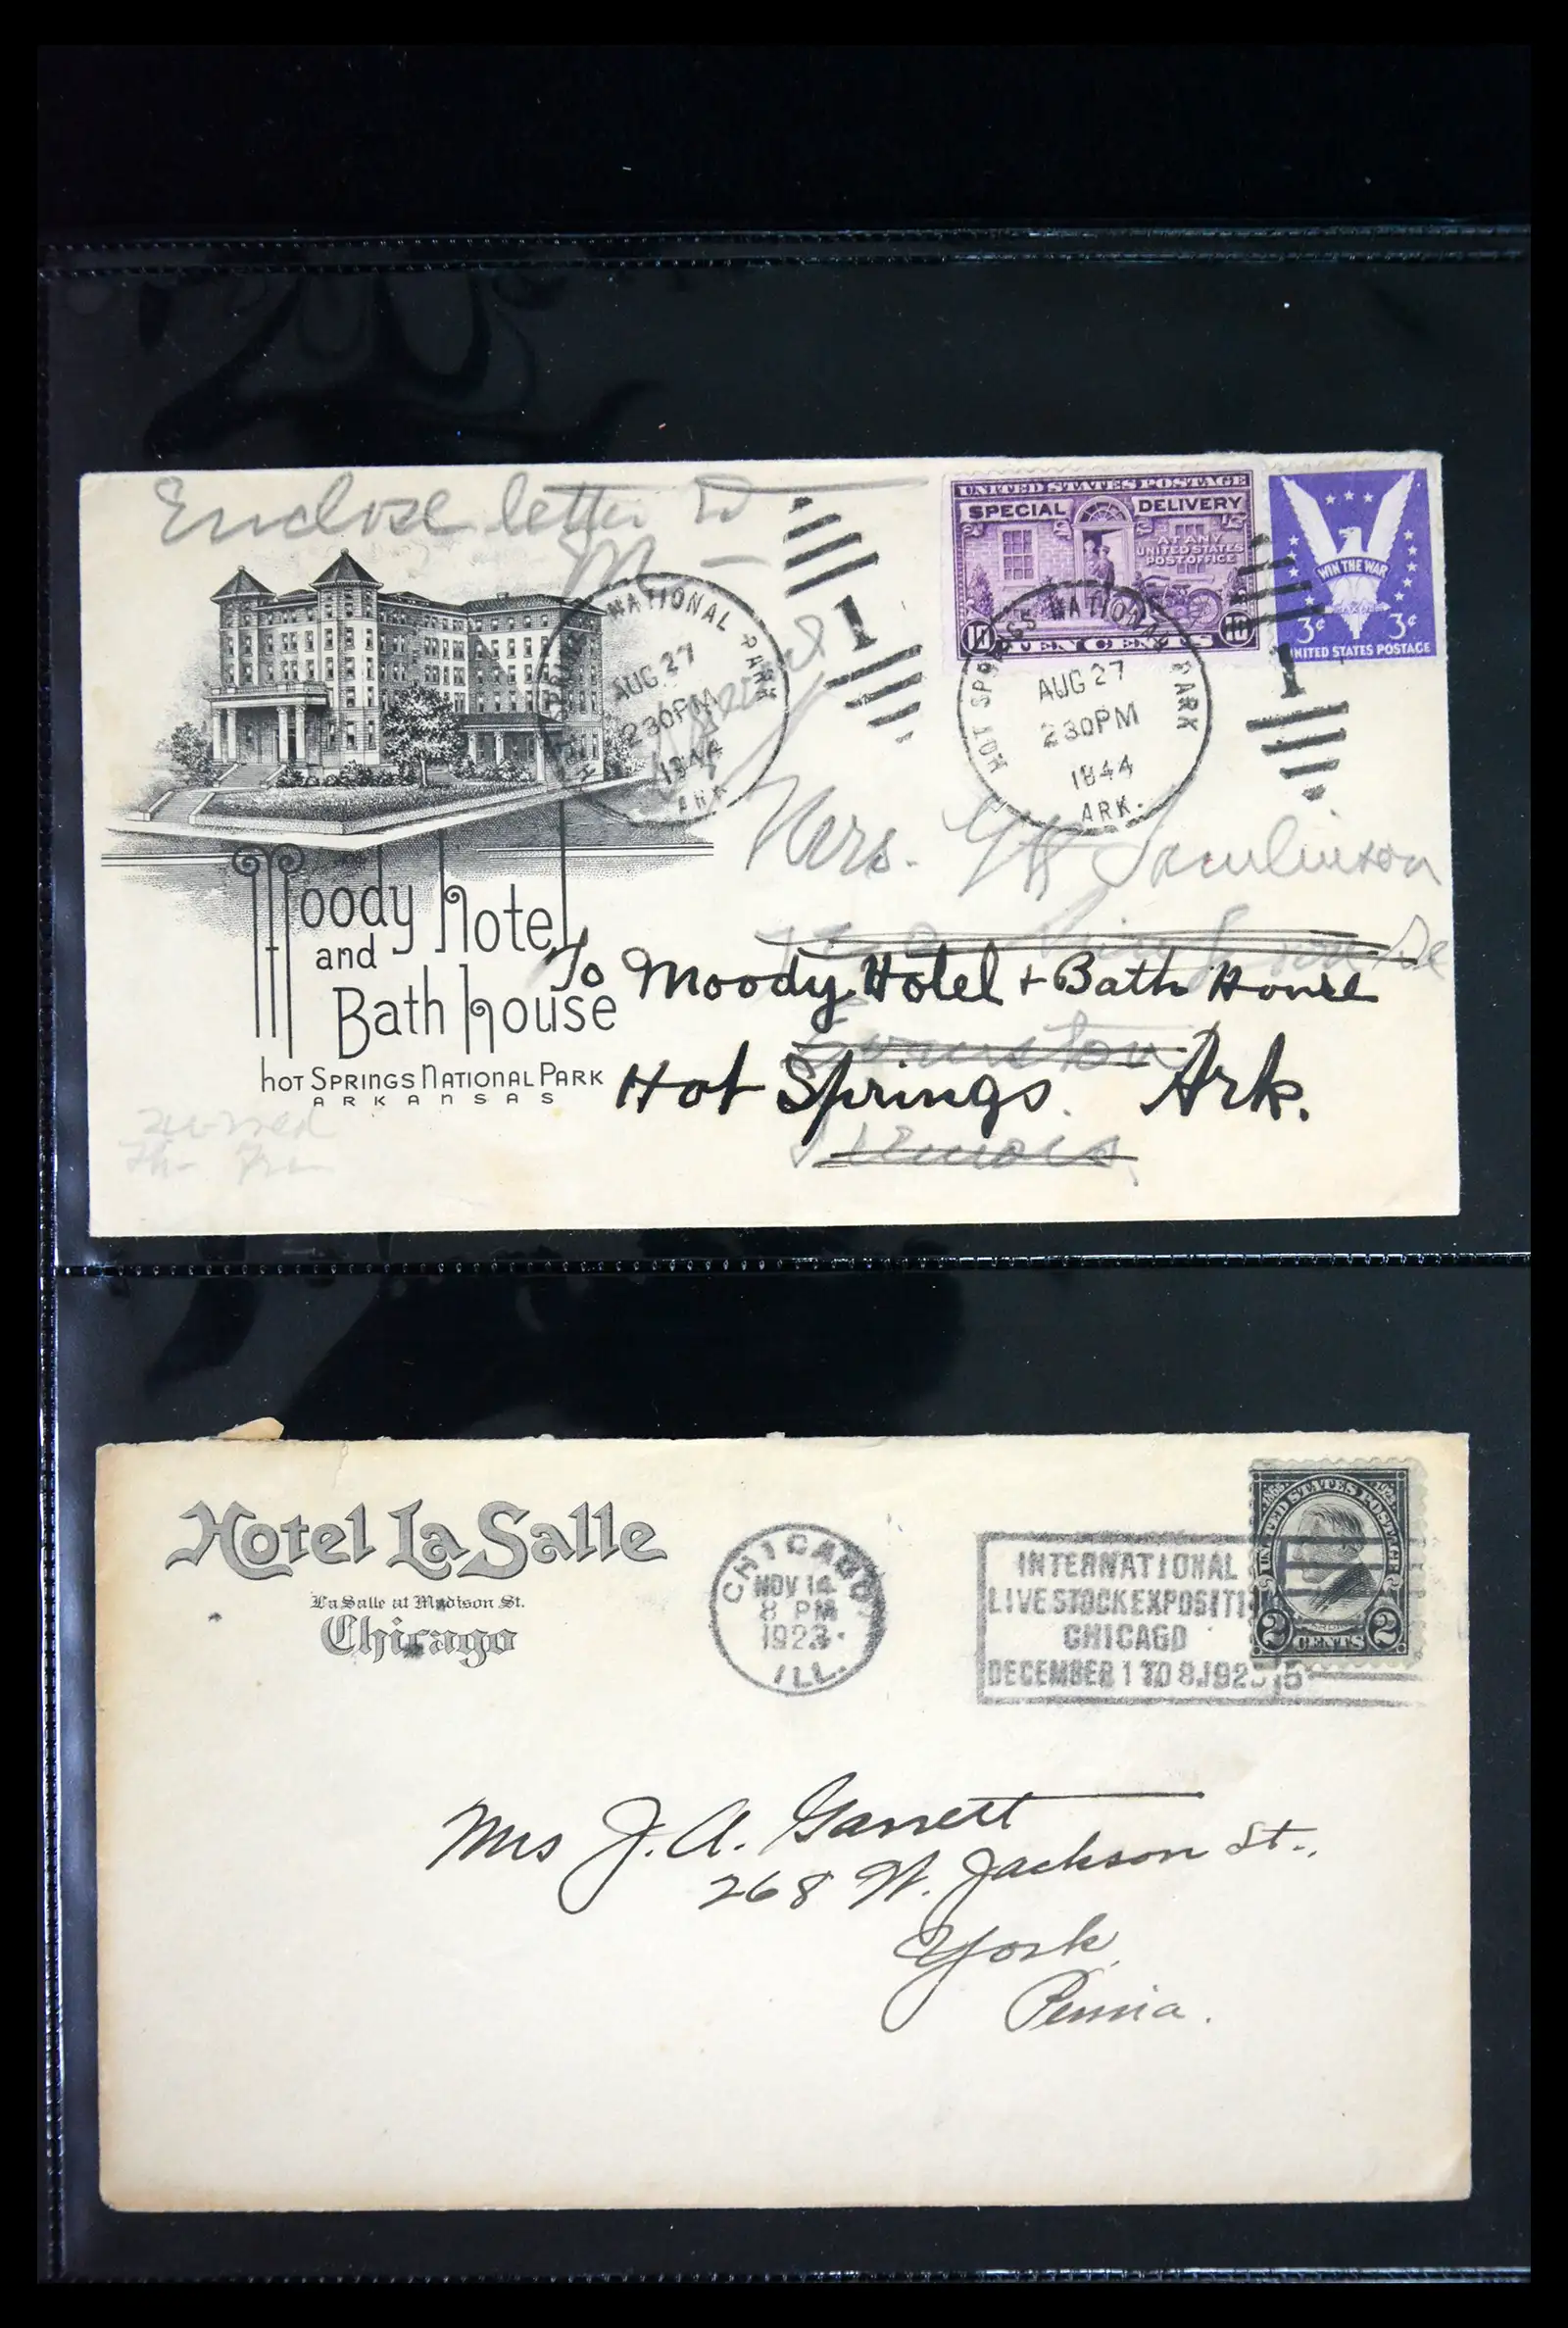 Enclose letter to
M —
UNITED STATES POSTAGE
SPECIAL DELIVERY
AT ANY
UNITED STATES
POST OFFICE
10 TEN CENTS 10
WIN THE WAR
3¢ 3¢
UNITED STATES POSTAGE
HOT SPRINGS NATIONAL PARK
AUG 27
230PM
1944
ARK
1
HOT SPRINGS NATIONAL PARK
AUG 27
230PM
1944
ARK.
1
Moody Hotel
and
Bath House
HOT SPRINGS NATIONAL PARK
ARKANSAS
Mrs. Tomlinson
To Moody Hotel + Bath House
Evanston
Hot Springs. Ark.
Illinois.
Hotel La Salle
La Salle at Madison St.
Chicago
CHICAGO
NOV 14
8 PM
1923
ILL.
INTERNATIONAL
LIVE STOCK EXPOSITI
CHICAGO
DECEMBER 1 TO 8, 192
UNITED STATES POSTAGE
2 CENTS 2
Mrs J. A. Garrett
268 W. Jackson St.,
York
Penna.